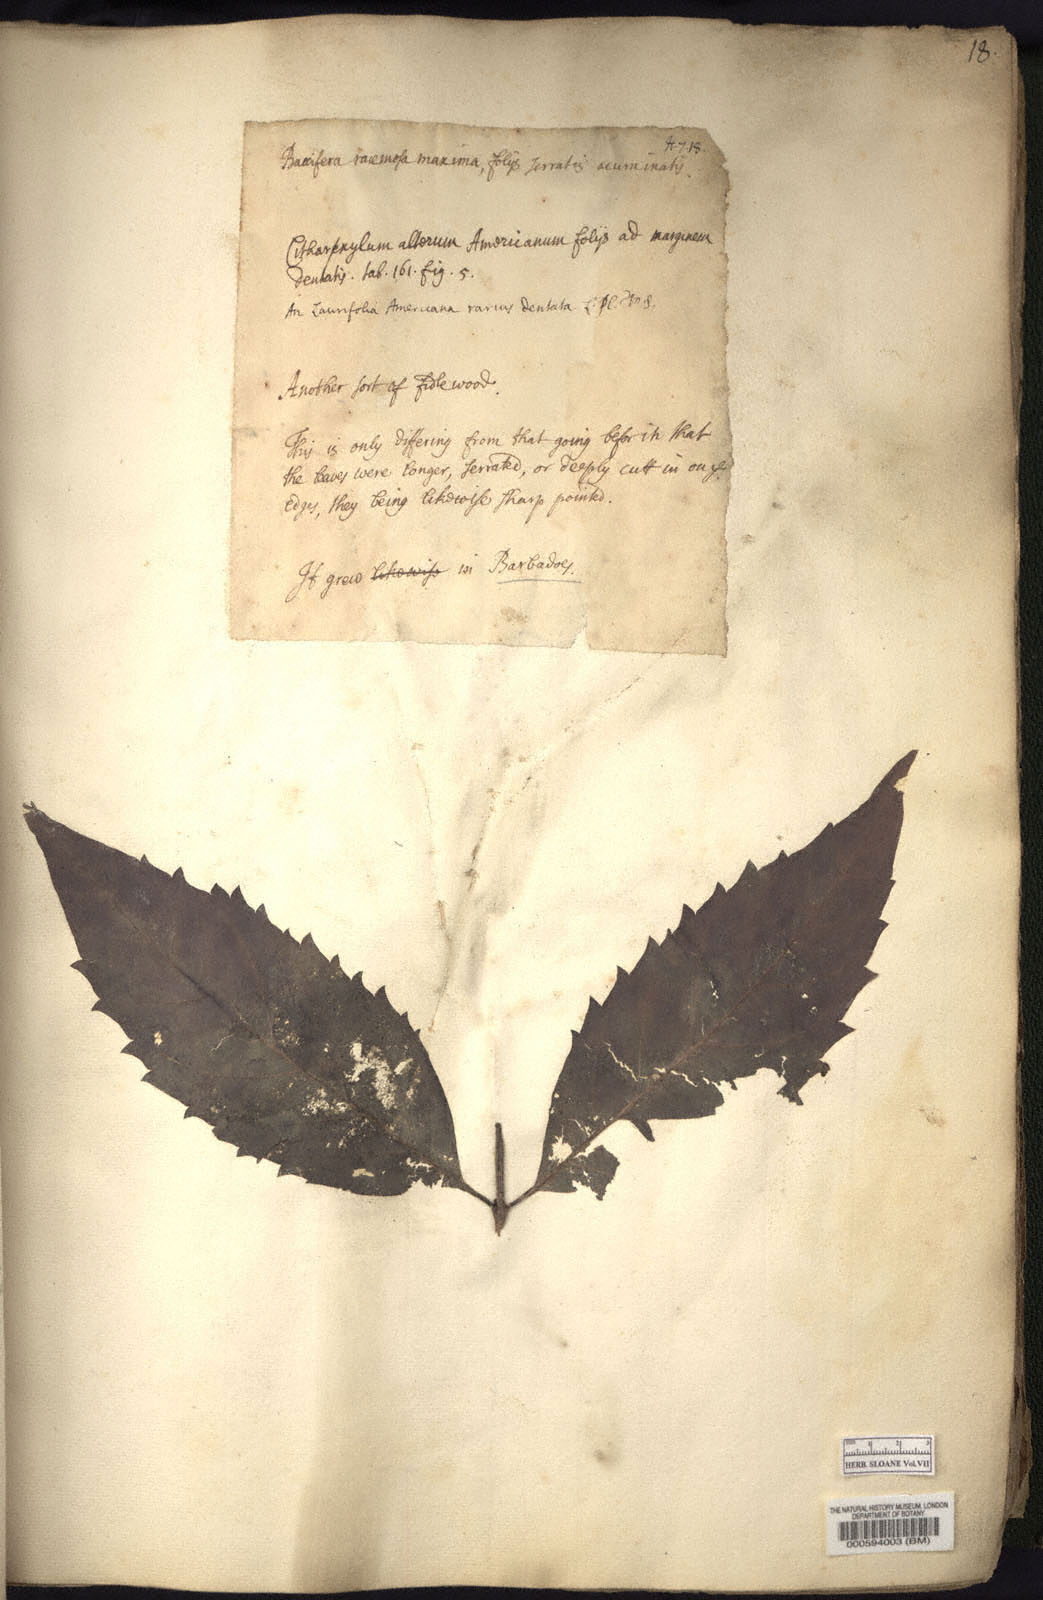 18.
H. 7. 18.
Baccifera racemosa maxima, folijs serratis acuminatis.
Citharexylum alterum Americanum folijs ad marginem
dentatis. tab. 161. fig. 5.
An Laurifolia Americana rarius dentata
Another sort of fidle wood.
This is only differing from that going befor in that
the leaves were longer, serrated, or deeply cutt in on ye
edges, they being likewise sharp pointed.
It grew likewise in Barbadoes.
HERB. SLOANE Vol. VII
THE NATURAL HISTORY MUSEUM, LONDON
DEPARTMENT OF BOTANY
000594003 (BM)